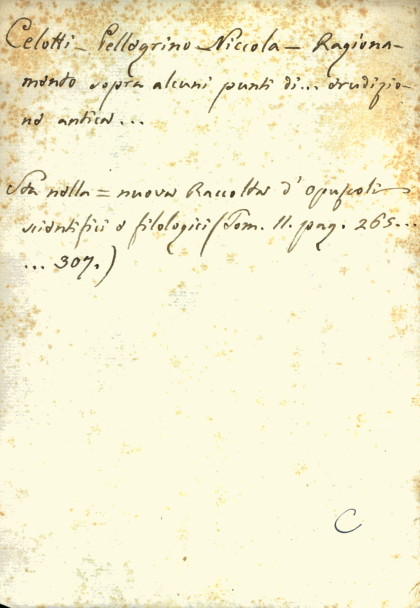 Celotti - Pellegrino - Niccola - Ragiona-
mento sopra alcuni punti di... erudizio-
ne antica...
Sta nella = nuova Raccolta d'Opuscoli
scientifici e filologici (Tom. 11. pag. 265...
... 307.)
C